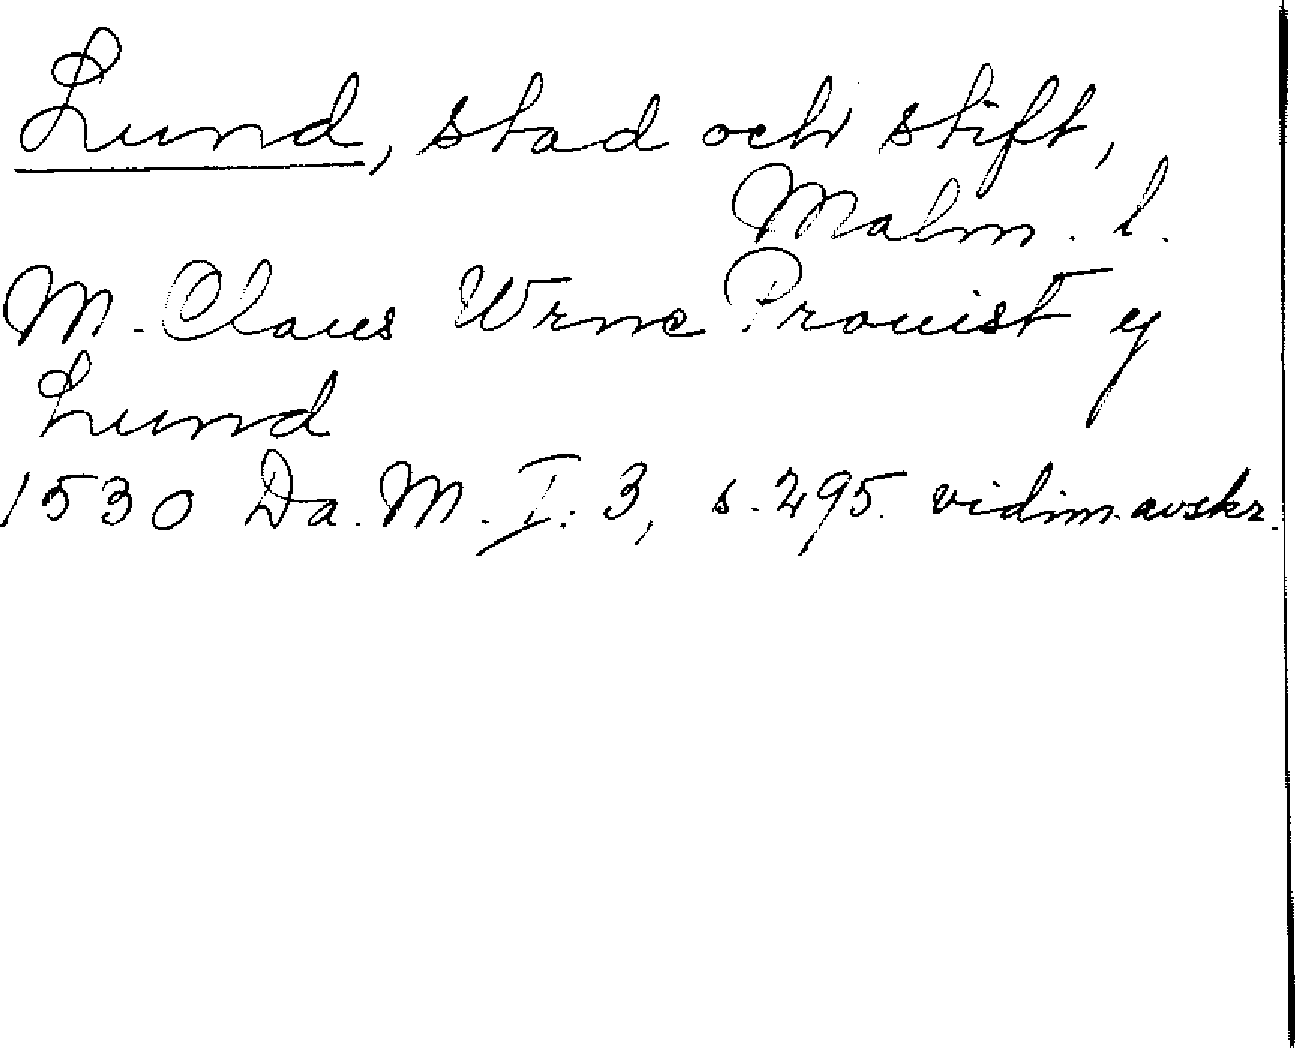 Lund, stad och stift,
Malm. l.
M. Claus Wrne Prouist y
Lund
1530 Da. M. I: 3, s. 295. vidim. avskr.